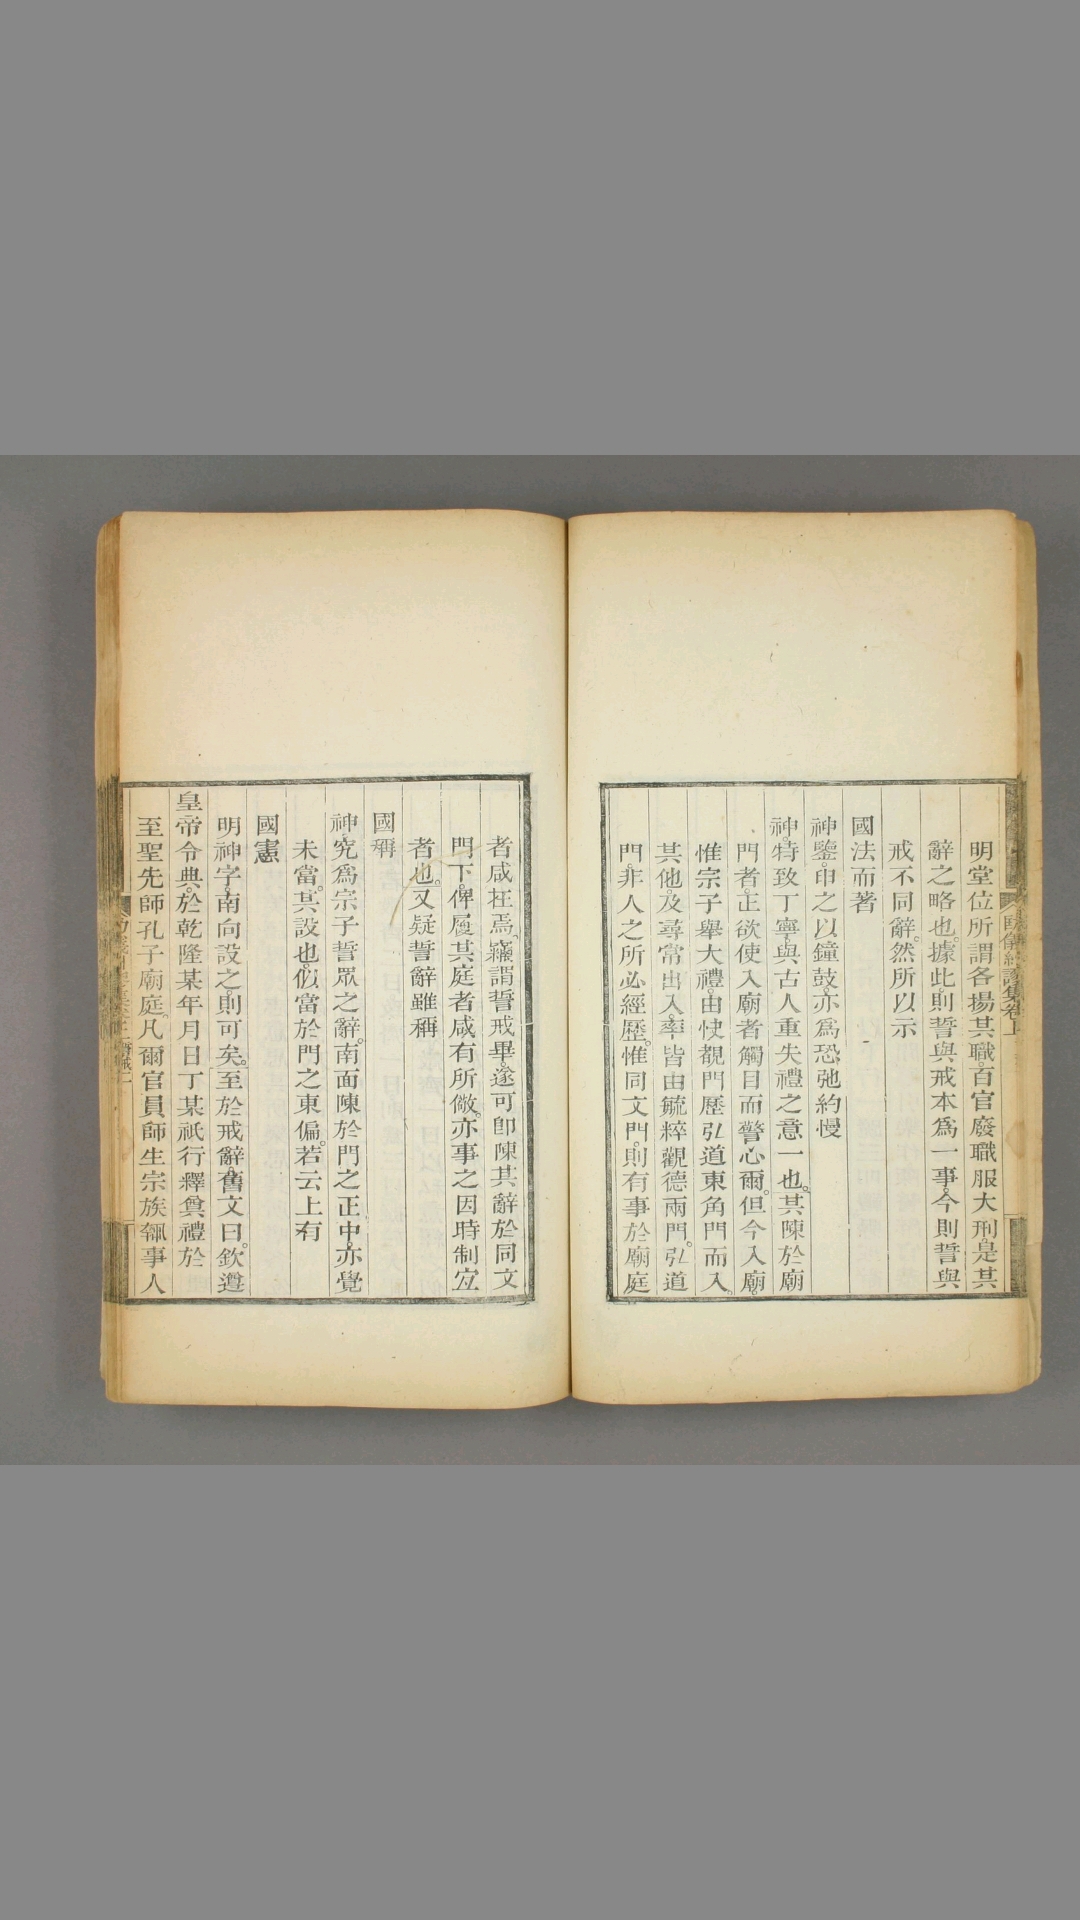 明堂位所謂各揚其職。百官廢職服大刑。是其
辭之略也。據此則誓與戒本爲一事。今則誓與
戒不同辭。然所以示
國法而著
神鑒。申之以鐘鼓。亦爲恐弛約慢
神。特致丁寧。與古人重失禮之意一也。其陳於廟
門者。正欲使入廟者觸目而警心爾。但今入廟。
惟宗子舉大禮。由快覩門歷弘道東角門而入。
其他及尋常出入。率皆由毓粹觀德兩門。弘道
門。非人之所必經歷。惟同文門。則有事於廟庭
者咸在焉。竊謂誓戒畢。遂可卽陳其辭於同文
門下。俾履其庭者咸有所儆。亦事之因時制宜
者也。又疑誓辭雖稱
國稱
神。究爲宗子誓眾之辭。南面陳於門之正中。亦覺
未當。其設也。似當於門之東偏。若云上有
國憲
明神字。南向設之。則可矣。至於戒辭舊文曰。欽遵
皇帝令典。於乾隆某年月日丁某祇行釋奠禮於
至聖先師孔子廟庭。凡爾官員師生宗族執事人